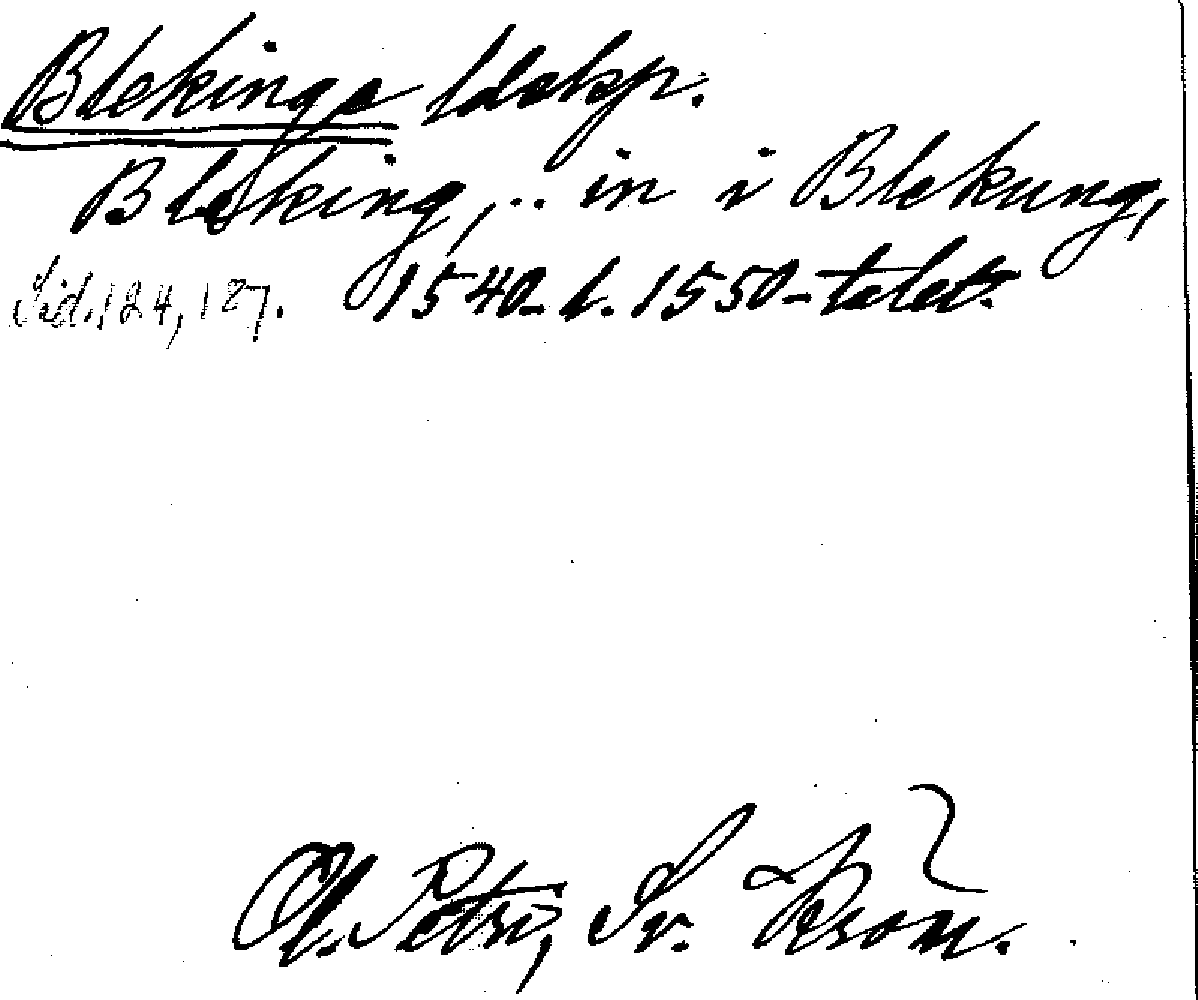 Blekinge ldskp.
Bleking, .. in i Blekung,
Sid. 124, 127. 1540- l. 1550-talet.
Ol. Petri, Sv. Krön.